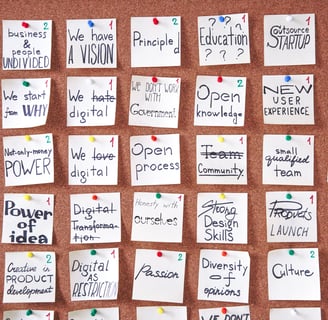 2
business
&
people
UNDIVIDED
1
We have
A VISION
2
Principled
1
? ? ?
Education
? ? ?
Outsource
STARTUP
1
We start
from WHY
1
We hate
digital
1
WE DON'T WORK
WITH
Government!
2
Open
knowledge
1
NEW
USER
EXPERIENCE
Not-only-money
POWER
1
We love
digital
1
Open
process
1
Team
Community
2
small
qualified
team
1
Power
of
idea
1
Digital
Transforma-
tion
1
Honesty with
ourselves
Strong
Design
Skills
1
Products
LAUNCH
2
Creative in
PRODUCT
development
2
Digital
AS
RESTRICTION
2
Passion
2
Diversity
of
opinions
2
Culture
1
WE DON'T